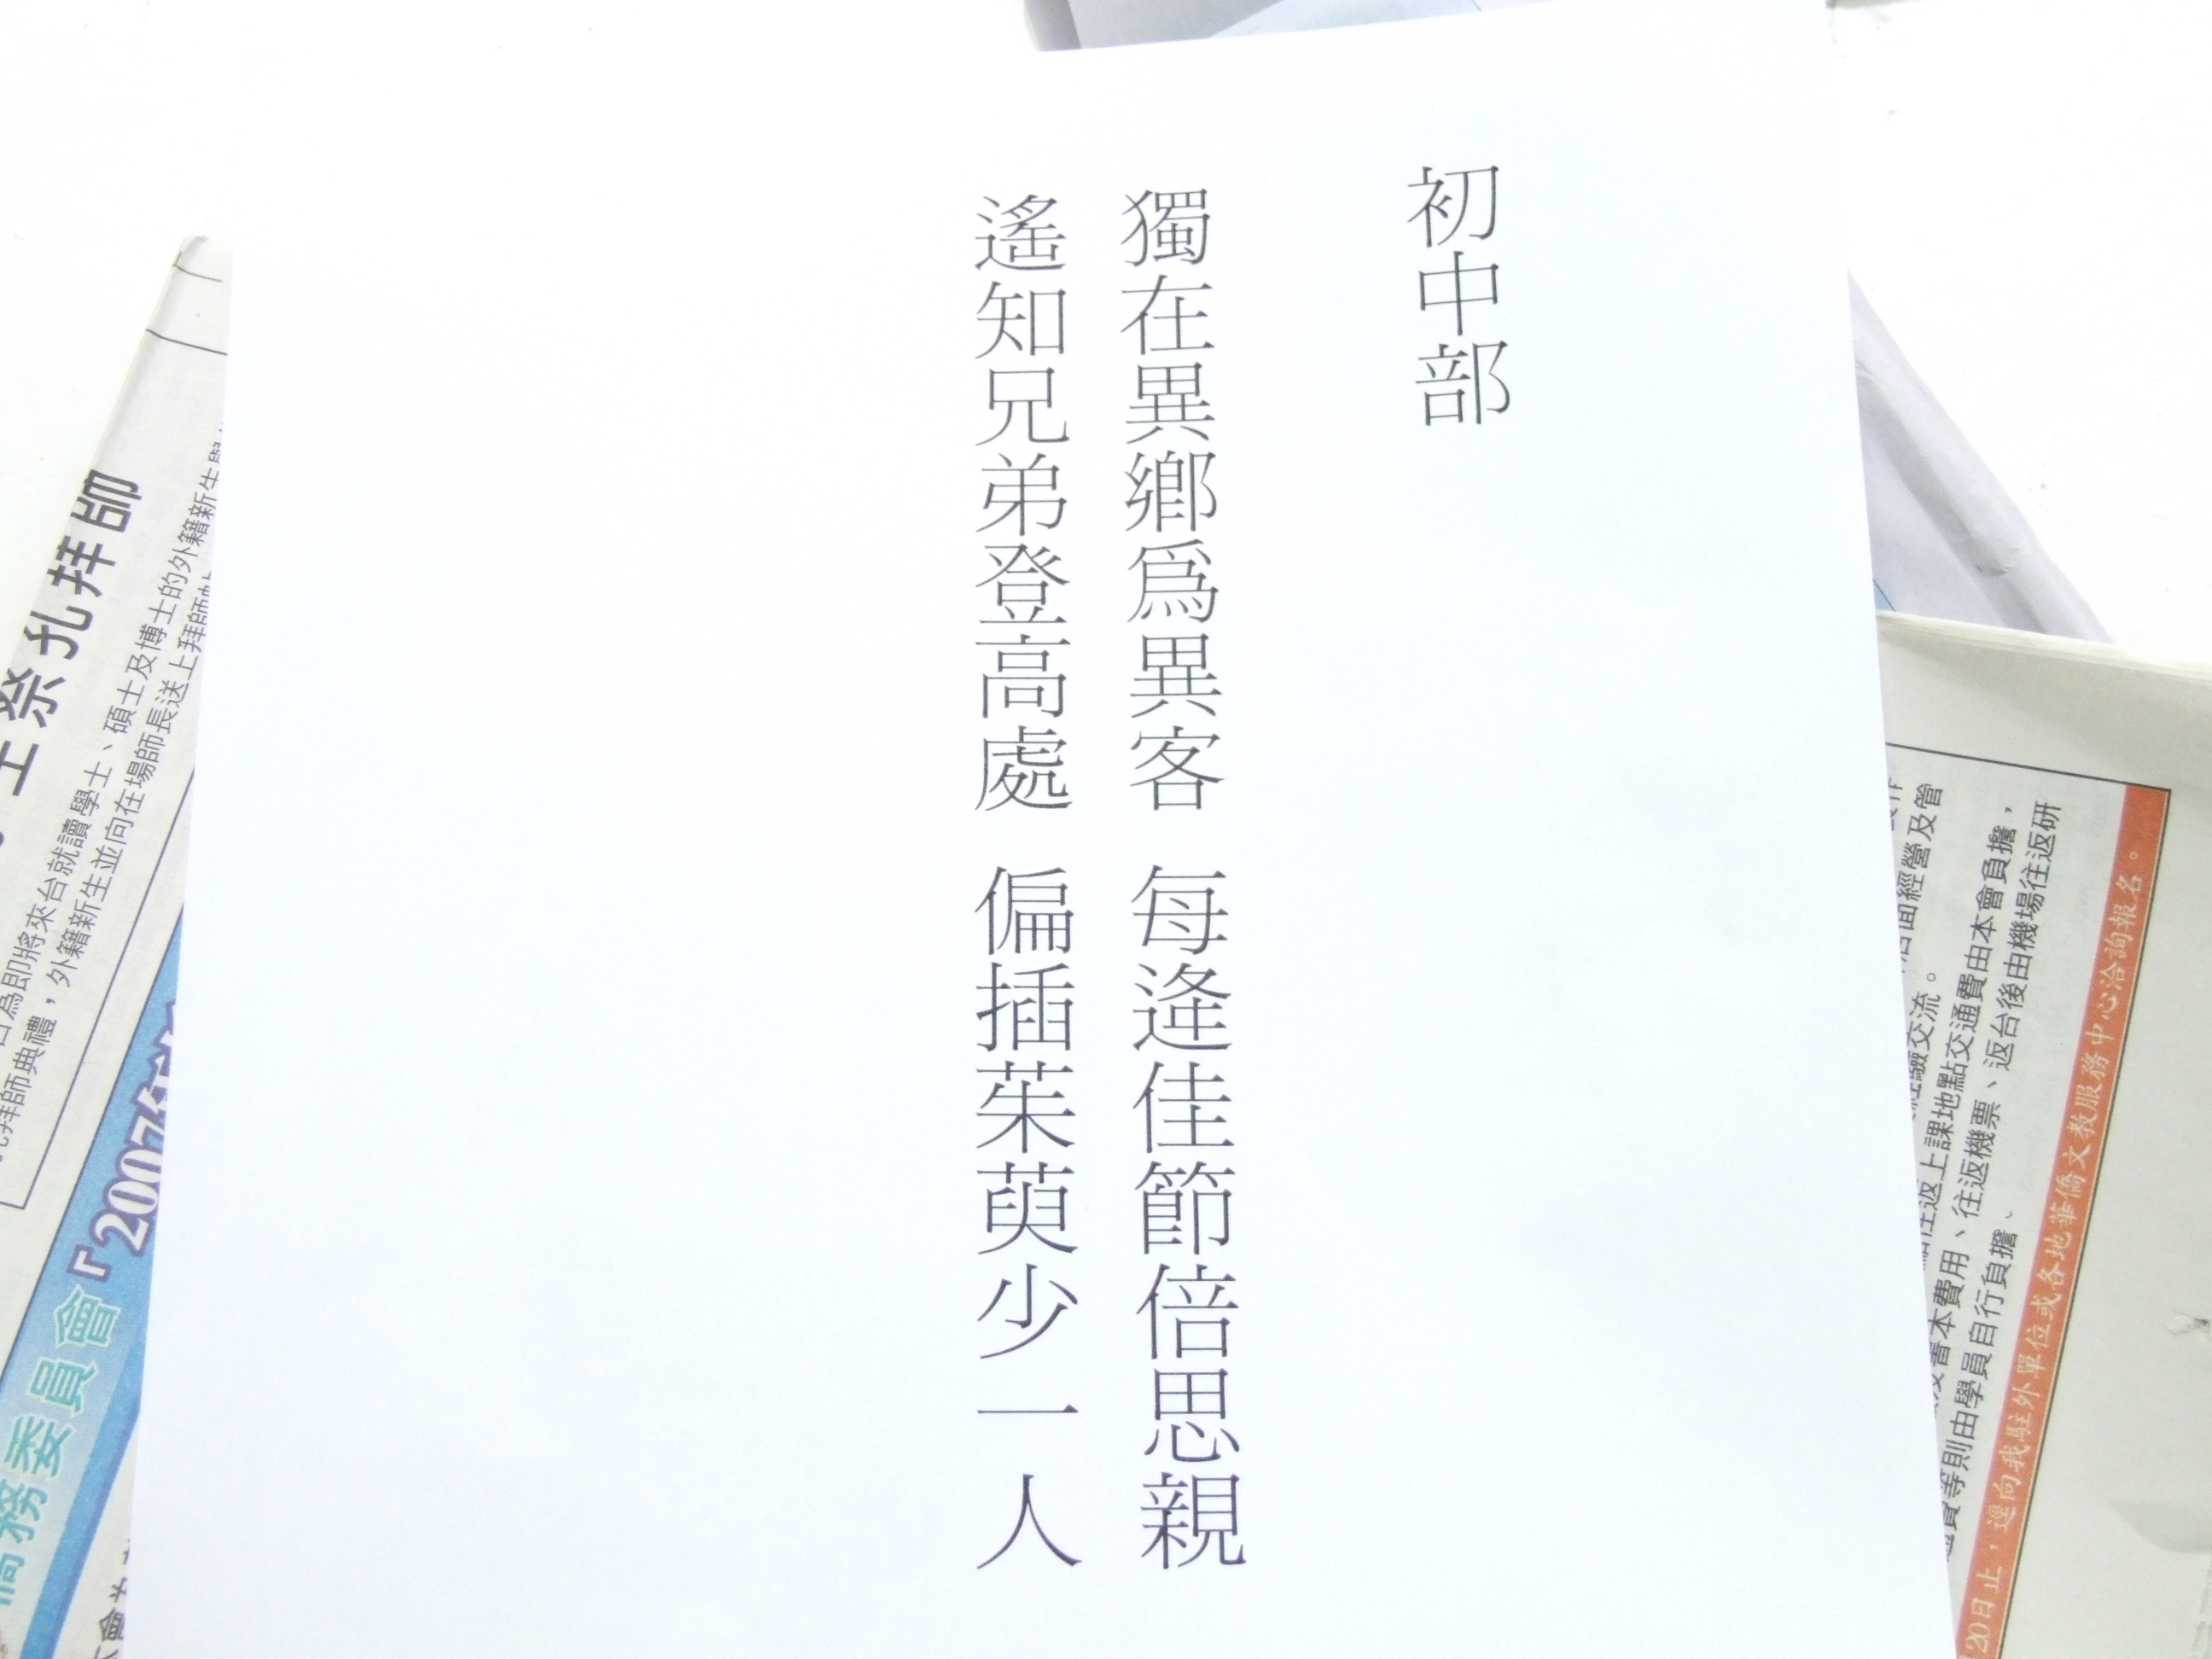 初中部
獨在異鄉爲異客 每逢佳節倍思親
遙知兄弟登高處 偏插茱萸少一人
祭孔拜師
為即將來台就讀學士、碩士及博士的外籍新生
拜師典禮，外籍新生並向在場師長送上拜師
務委員會『2007年
面經營及管
交流。
往返上課地點交通費由本會負擔，
書本費用、往返機票、返台後由機場往返研
等則由學員自行負擔、
20日止，逕向我駐外單位或各地華僑文教服務中心洽詢報名。